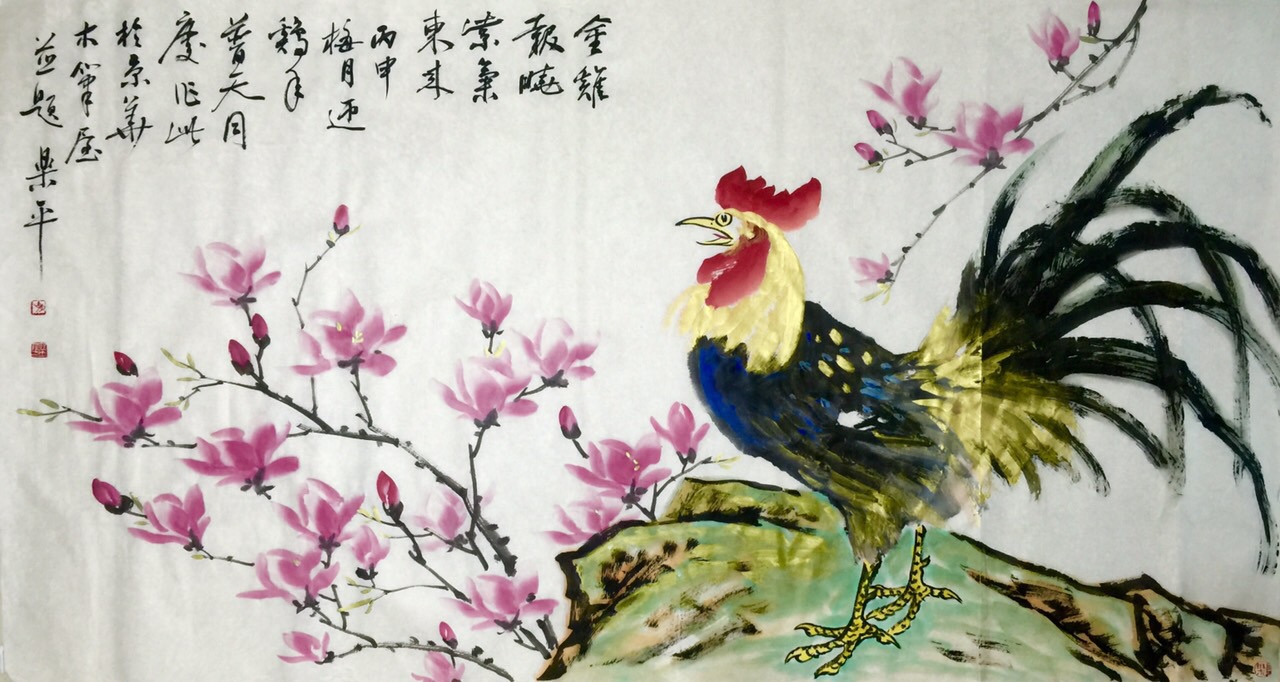 金雞
報曉
紫氣
東來
丙申
梅月迎
鷄年
普天同
慶作此
於京華
木筆屋
並題 樂平